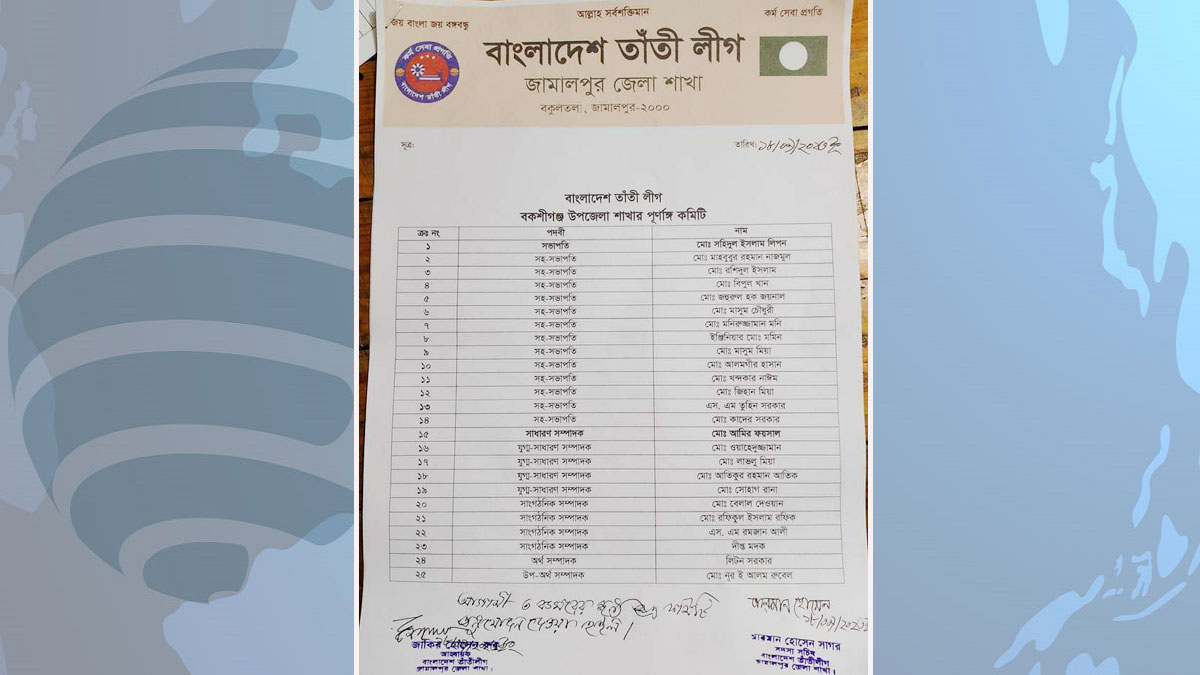 আল্লাহ সর্বশক্তিমান
জয় বাংলা জয় বঙ্গবন্ধু
কর্ম সেবা প্রগতি
কর্ম সেবা প্রগতি
বাংলাদেশ তাঁতী লীগ
বাংলাদেশ তাঁতী লীগ
জামালপুর জেলা শাখা
বকুলতলা, জামালপুর-২০০০
সূত্র:
তারিখ:
বাংলাদেশ তাঁতী লীগ
বকশীগঞ্জ উপজেলা শাখার পূর্ণাঙ্গ কমিটি
ক্রঃ নং পদবী নাম
১ সভাপতি মোঃ সহিদুল ইসলাম লিপন
২ সহ-সভাপতি মোঃ মাহবুবুর রহমান নাজমুল
৩ সহ-সভাপতি মোঃ রশিদুল ইসলাম
৪ সহ-সভাপতি মোঃ বিপুল খান
৫ সহ-সভাপতি মোঃ জহুরুল হক জয়নাল
৬ সহ-সভাপতি মোঃ মাসুম চৌধুরী
৭ সহ-সভাপতি মোঃ মনিরুজ্জামান মনি
৮ সহ-সভাপতি ইঞ্জিনিয়ার মোঃ মমিন
৯ সহ-সভাপতি মোঃ মাসুম মিয়া
১০ সহ-সভাপতি মোঃ আলমগীর হাসান
১১ সহ-সভাপতি মোঃ খন্দকার নাঈম
১২ সহ-সভাপতি মোঃ জিহান মিয়া
১৩ সহ-সভাপতি এস. এম তুহিন সরকার
১৪ সহ-সভাপতি মোঃ কাদের সরকার
১৫ সাধারণ সম্পাদক মোঃ আমির ফয়সাল
১৬ যুগ্ম-সাধারণ সম্পাদক মোঃ ওয়াহেদুজ্জামান
১৭ যুগ্ম-সাধারণ সম্পাদক মোঃ লাভলু মিয়া
১৮ যুগ্ম-সাধারণ সম্পাদক মোঃ আতিকুর রহমান আতিক
১৯ যুগ্ম-সাধারণ সম্পাদক মোঃ সোহাগ রানা
২০ সাংগঠনিক সম্পাদক মোঃ বেলাল দেওয়ান
২১ সাংগঠনিক সম্পাদক মোঃ রফিকুল ইসলাম রফিক
২২ সাংগঠনিক সম্পাদক এস. এম রমজান আলী
২৩ সাংগঠনিক সম্পাদক দীপ্ত মদক
২৪ অর্থ সম্পাদক লিটন সরকার
২৫ উপ-অর্থ সম্পাদক মোঃ নূর ই আলম রুবেল
আগামী ৩ বৎসরের জন্য
অনুমোদন দেওয়া হইল।
জাকির হোসেন
আহ্বায়ক
বাংলাদেশ তাঁতীলীগ
জামালপুর জেলা শাখা।
হোসেন সাগর
সদস্য সচিব
বাংলাদেশ তাঁতীলীগ
জামালপুর জেলা শাখা।